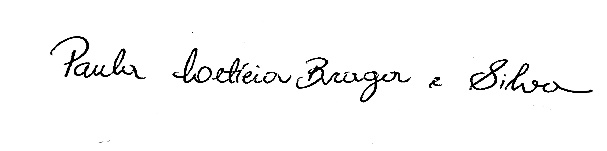 Paula Loetícia Braga e Silva